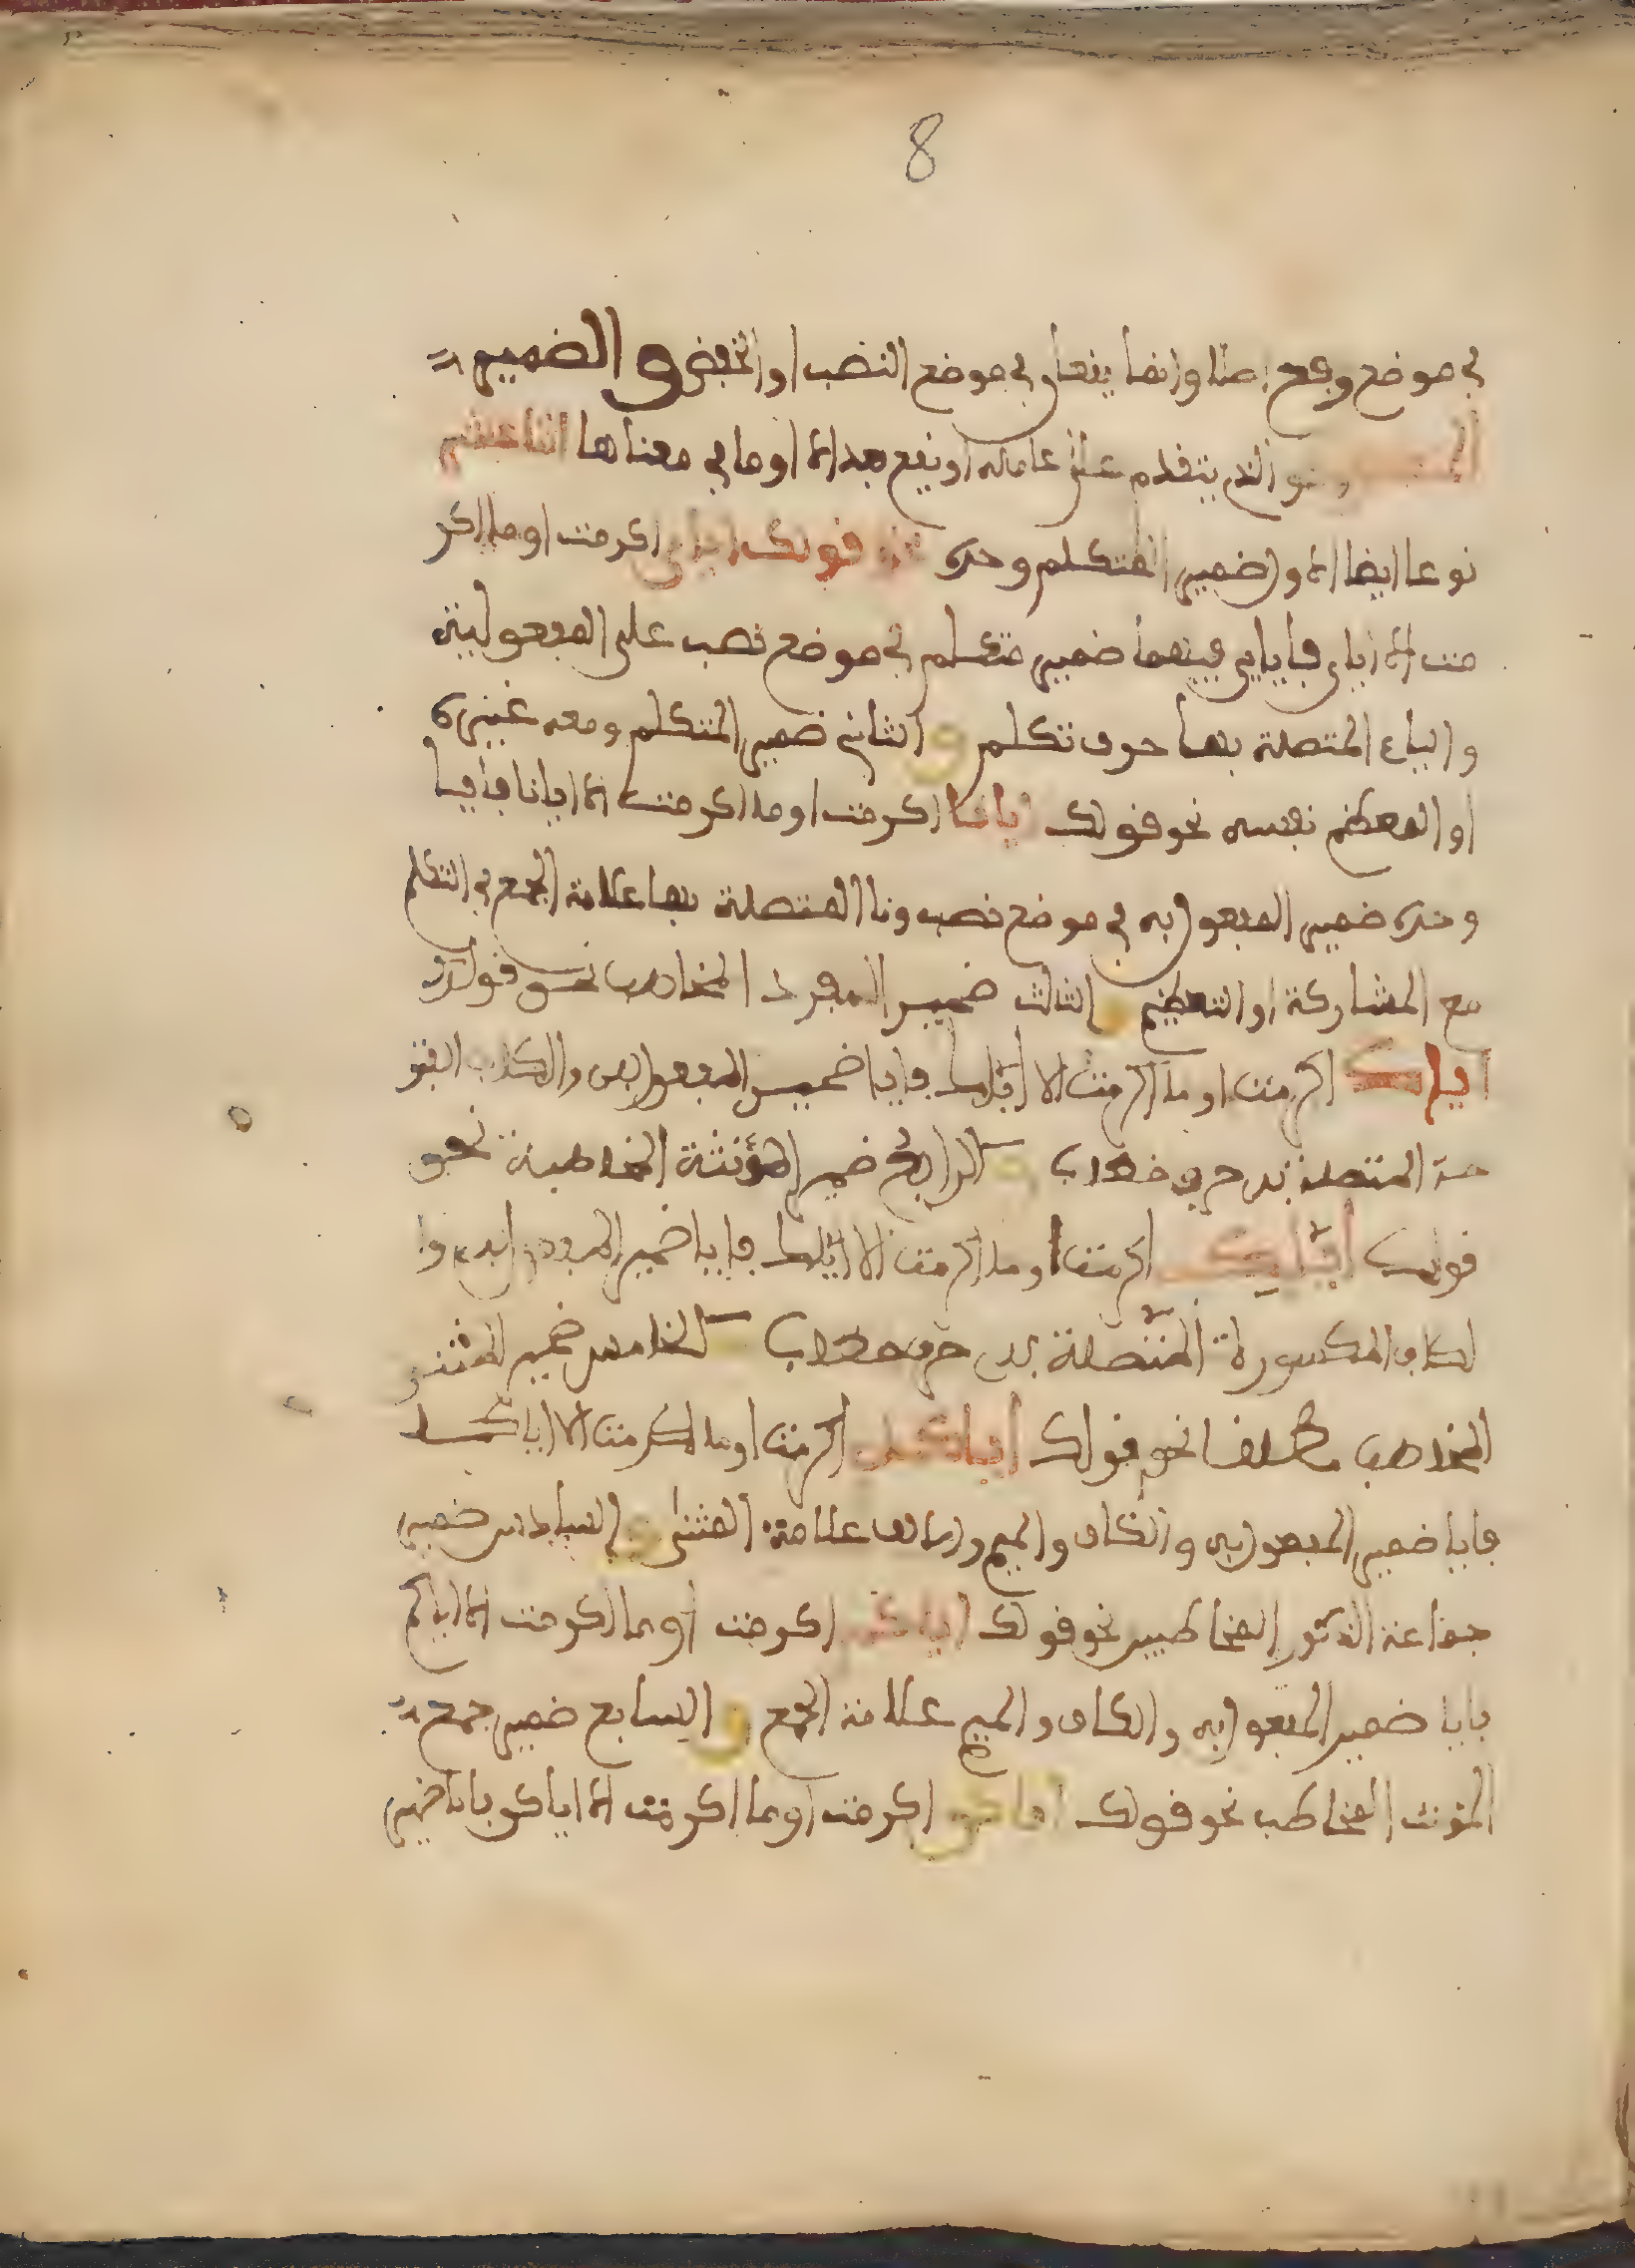 8
في موضع رفع اصلا وانما ينفعل في موضع النصب او الخفض والضمير
المنفصل هو الذي يتقدم على عامله او يقع بعد الا او ما في معناها اثنا عشر
نوعا ايضا الاول ضمير المتكلم وحده نحو قولك اياي اكرمت او ما اكر
مت الا اياي فايا فيهما ضمير متكلم في موضع نصب على المفعولية
والياء المتصلة بها حرف تكلم والثاني ضمير المتكلم ومعه غيره
او المعظم نفسه نحو قولك ايانا اكرمت او ما اكرمت الا ايانا فايا
وحده ضمير المفعول به في موضع نصب ونا المتصلة بها علامة الجمع في التكلم
مع المشاركة او التعظيم والثالث ضمير المفرد المخاطب نحو قولك
اياك اكرمت او ما اكرمت الا اياك فايا ضمير المفعول به والكاف المفتو
حة المتصلة به حرف خطاب والرابع ضمير المؤنثة المخاطبة نحو
قولك اياك اكرمت او ما اكرمت الا اياك فايا ضمير المفعول به وا
لكاف المكسورة المتصلة به حرف خطاب والخامس ضمير المثنى
المخاطب مطلقا نحو قولك اياكما اكرمت او ما اكرمت الا اياكما
فايا ضمير المفعول به والكاف والميم والالف علامة المثنى والسادس ضمير
جماعة الذكور المخاطبين نحو قولك اياكم اكرمت او ما اكرمت الا اياكم
فايا ضمير المفعول به والكاف والميم علامة الجمع والسابع ضمير جمع
المؤنث المخاطب نحو قولك اياكن اكرمت او ما اكرمت الا اياكن فايا ضمير